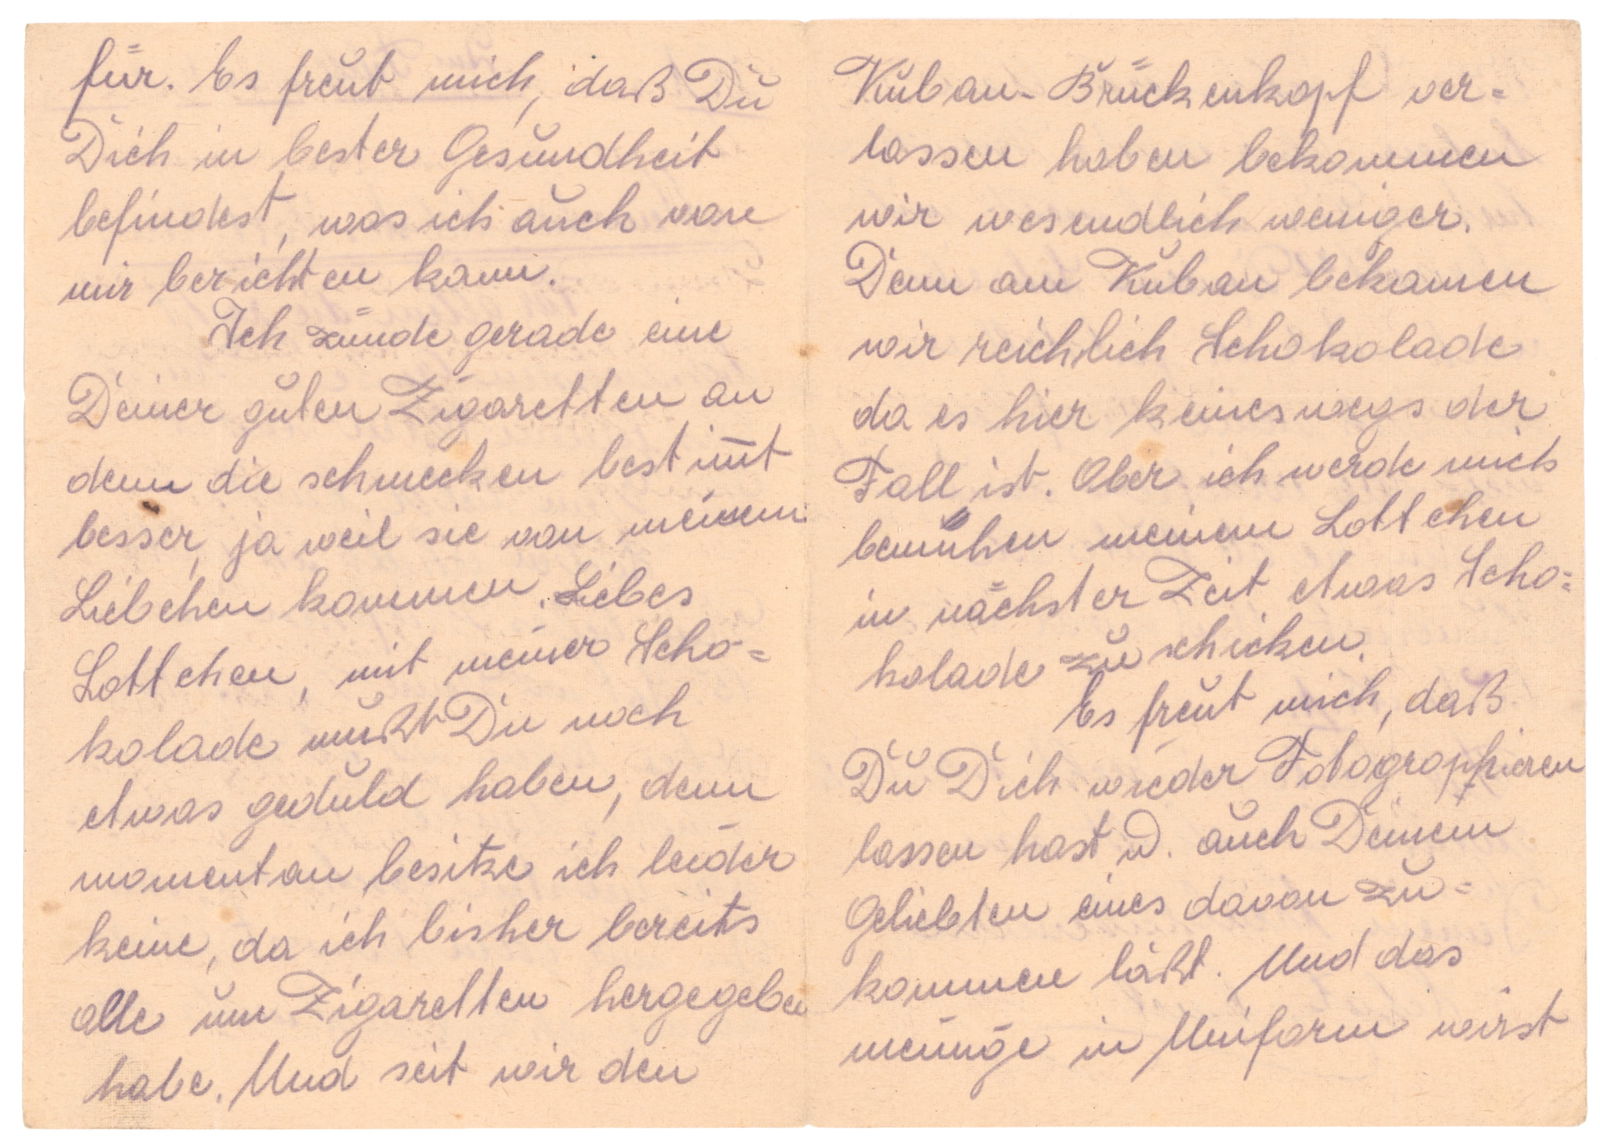 für. Es freut mich, daß Du
Dich in bester Gesundheit
befindest, was ich auch von
mir berichten kann.
Ich zünde gerade eine
Deiner guten Zigaretten an
denn die schmecken bestim̅t
besser, ja weil sie von meinem
Liebchen kommen. Liebes
Lottchen, mit meiner Scho=
kolade mußt Du noch
etwas geduld haben, denn
momentan besitze ich leider
keine, da ich bisher bereits
alle um Zigaretten hergegeben
habe. Und seit wir den
Kuban-Brückenkopf ver-
lassen haben bekommen
wir wesendlich weniger.
Denn am Kuban bekamen
wir reichlich Schokolade
da es hier keineswegs der
Fall ist. Aber ich werde mich
bemühen meinem Lottchen
in nächster Zeit etwas Scho=
kolade zu schicken.
Es freut mich, daß
Du Dich wieder Fotographieren
lassen hast u. auch Deinem
Geliebten eines davon zu=
kommen läßt. Und das
in Uniform wirst